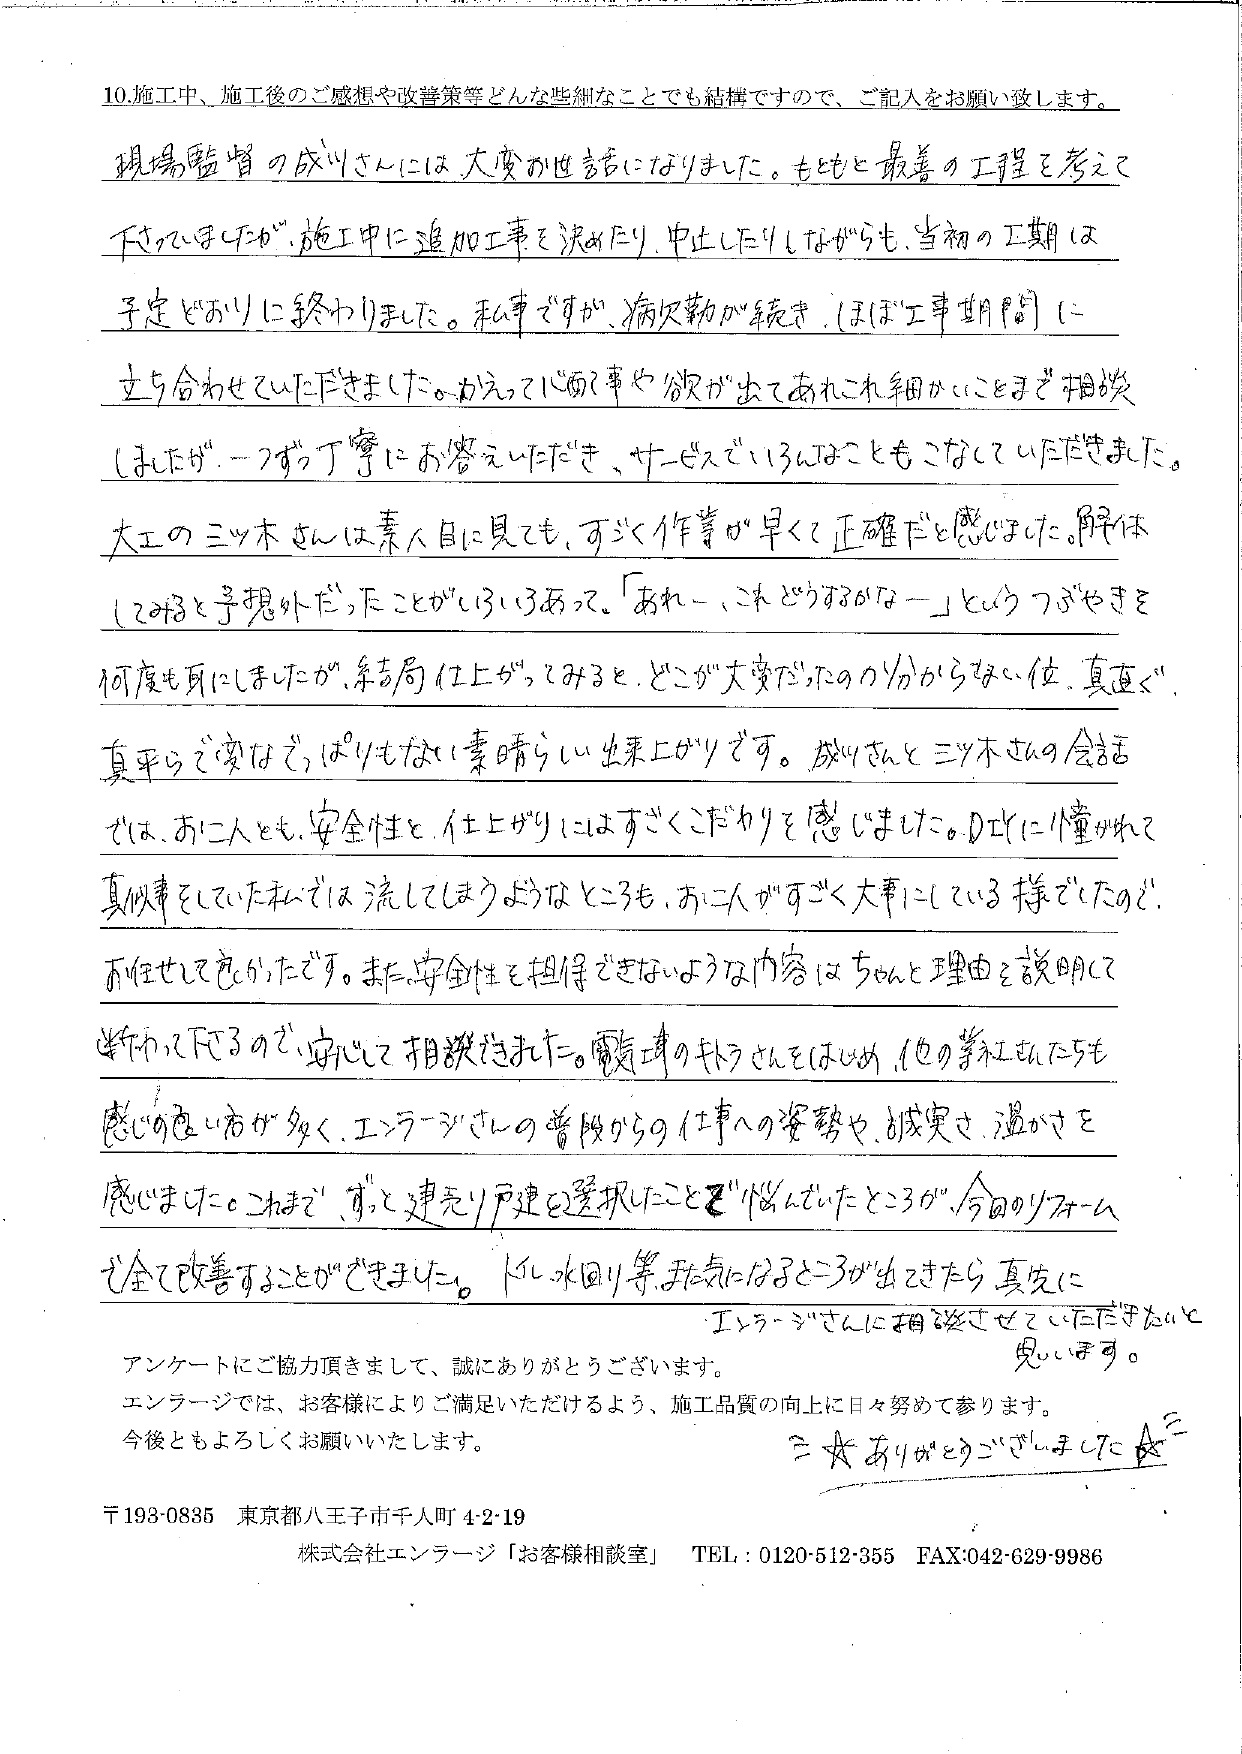 10.施工中、施工後のご感想や改善策等どんな些細なことでも結構ですので、ご記入をお願い致します。
現場監督の成川さんには大変お世話になりました。もともと最善の工程を考えて
下さっていましたが、施工中に追加工事を決めたり、中止したりしながらも、当初の工期は
予定どおりに終わりました。私事ですが、病欠勤が続き、ほぼ工事期間に
立ち合わせていただきました。かえって心配事や欲が出てあれこれ細かいことまで相談
しましたが、一つずつ丁寧にお答えいただき、サービスでいろんなこともこなしていただきました。
大工の三ツ木さんは素人目に見ても、すごく作業が早くて正確だと感じました。解体
してみると予想外だったことがいろいろあって、「あれー、これどうするかなー」というつぶやきを
何度も耳にしましたが、結局仕上がってみると、どこが大変だったのか分からない位、真直ぐ、
真平らで変なでっぱりもない素晴らしい出来上がりです。成川さんと三ツ木さんの会話
では、お二人とも、安全性と、仕上がりにはすごくこだわりを感じました。DIYに憧がれて
真似事をしていた私では流してしまうようなところも、お二人がすごく大事にしている様でしたので、
お任せして良かったです。また、安全性を担保できないような内容はちゃんと理由を説明して
断わって下さるので、安心して相談できました。電気工事のキトラさんをはじめ、他の業社さんたちも
感じの良い方が多く、エンラージさんの普段からの仕事への姿勢や、誠実さ、温かさを
感じました。これまで、ずっと建売り戸建を選択したことで悩んでいたところが、今回のリフォーム
で全て改善することができました。トイレ、水回り等、また気になるところが出てきたら真先に
エンラージさんに相談させていただきたいと
思います。
アンケートにご協力頂きまして、誠にありがとうございます。
エンラージでは、お客様によりご満足いただけるよう、施工品質の向上に日々努めて参ります。
今後ともよろしくお願いいたします。
☆ありがとうございました☆
〒193-0835　東京都八王子市千人町 4-2-19
株式会社エンラージ「お客様相談室」　TEL：0120-512-355　FAX:042-629-9986